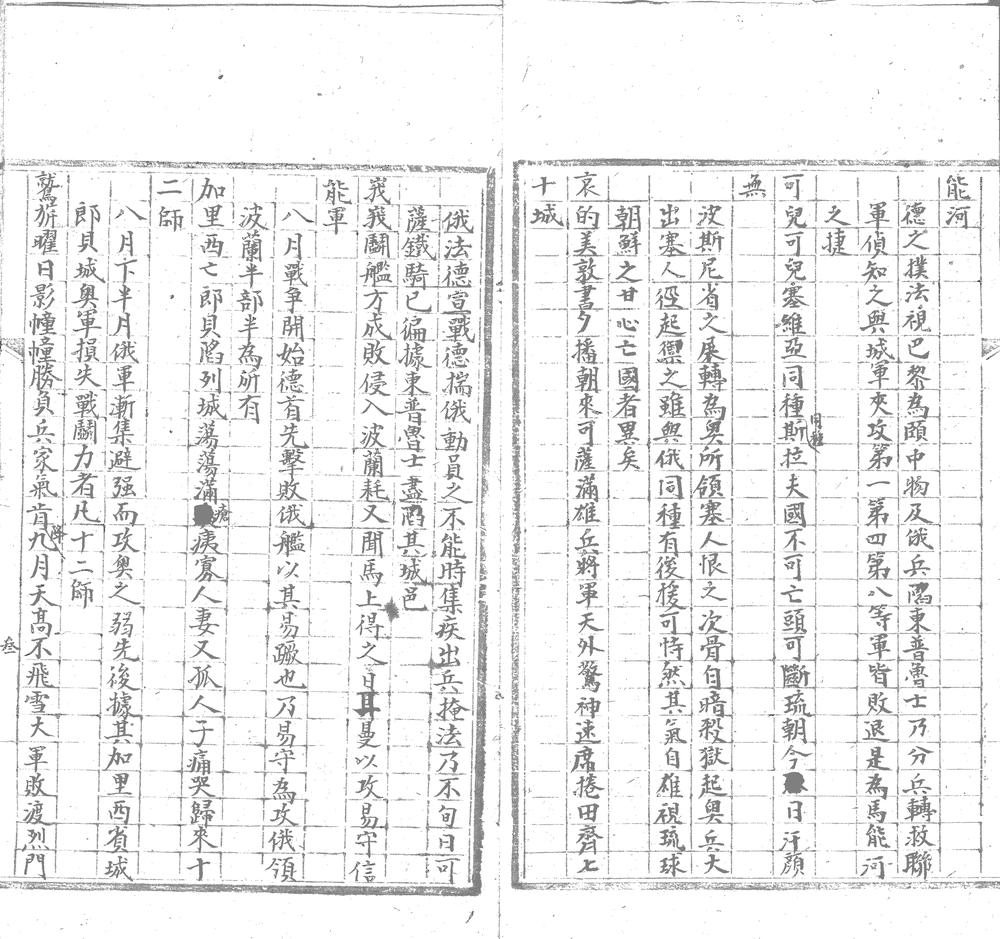 能河
德之撲法視巴黎為頤中物及俄兵陷東普魯士乃分兵轉救聯
軍偵知之與城軍夾攻第一第四第八等軍皆敗退是為馬能河
之捷
可兒可兒塞維亞同種斯拉夫國不可亡頭可斷琉朝今日汗顏
同種
無
波斯尼省之展轉為奧所領塞人恨之次骨自暗殺獄起奧兵大
出塞人徑起禦之雖與俄同種有後援可恃然其氣自雄視琉球
朝鮮之甘心亡國者異矣
哀的美敦書夕播朝來可薩滿雄兵將軍天外驚神速席捲田齊七
十城
俄法德宣戰德揣俄動員之不能時集疾出兵掩法乃不旬日可
薩鐵騎已徧據東普魯士盡陷其城邑
峩峩鬬艦方成敗侵入波蘭耗又聞馬上得之言耳曼以攻易守信
能軍
八月戰爭開始德首先擊敗俄艦以其易蹶也乃易守為攻俄領
波蘭半部半為所有
加里西亡郎貝陷列城蕩蕩滿痍寡人妻又孤人子痛哭歸來十
瘡
二師
八月下半月俄軍漸集避强而攻奧之弱先後據其加里西省城
郎貝城奧軍損失戰鬬力者凡十二師
鷲旂曜日影幢幢勝負兵家氣肯九月天高不飛雪大軍敗渡烈門
降
叁